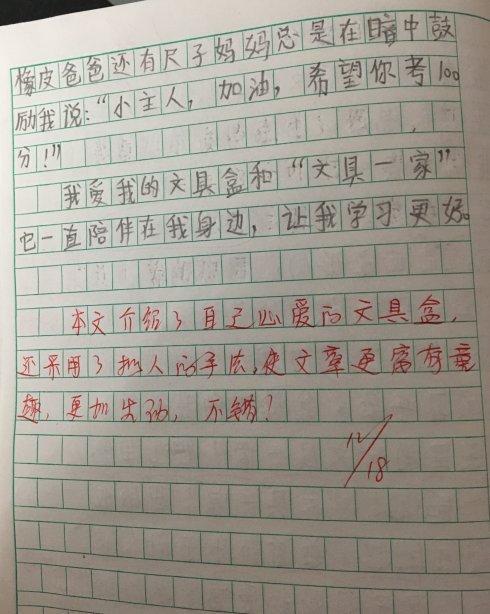 橡皮爸爸还有尺子妈妈总是在暗中鼓
励我说：“小主人，加油，希望你考100
分！”
我爱我的文具盒和“文具一家”
它一直陪伴在我身边，让我学习更好。
本文介绍了自己心爱的文具盒，
还采用了拟人的手法，使文章更富有童
趣，更加生动，不错！
12/18